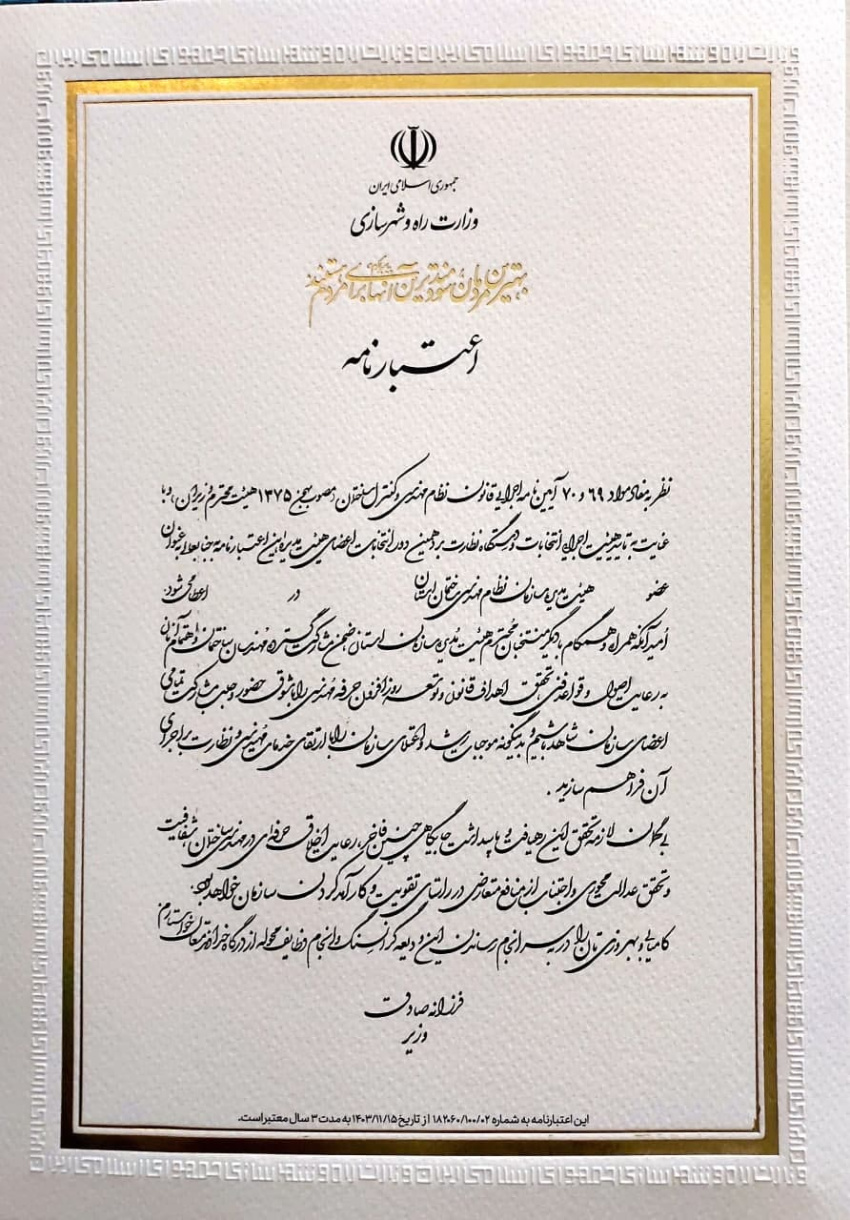 جمهوری اسلامی ایران
وزارت راه و شهرسازی
بهترین مردمان، سودمندترین آنها برای مردم هستند
اعتبارنامه
نظر به مفاد مواد ۶۹ و ۷۰ آیین نامه اجرایی قانون نظام مهندسی و کنترل ساختمان مصوب بهمن ۱۳۷۵ هیئت محترم وزیران، و با
عنایت به تایید هیئت اجرایی انتخابات و دستگاه نظارت بر دهمین دوره انتخابات اعضای هیئت مدیره، این اعتبارنامه به جنابعالی به عنوان
عضو هیئت مدیره سازمان نظام مهندسی ساختمان استان در اعطا می شود.
امید آنکه همراه و همگام با دیگر منتخبان محترم هیئت مدیره سازمان استان، ضمن مشارکت گسترده مهندسان ساختمان و اهتمام آنان
به رعایت اصول و قواعد فنی، تحقق اهداف قانون و توسعه روزافزون حرفه مهندسی را با شوق حضور و جلب مشارکت تمامی
اعضای سازمان شاهد باشیم و بدینگونه موجبات رشد و اعتلای سازمان را با ارتقای خدمات مهندسی و نظارت بر اجرای
آن فراهم سازید.
بی گمان لازمه تحقق این رهیافت و پاسداشت جایگاهی چنین فاخر، رعایت اخلاق حرفه ای در مهندسی ساختمان، شفافیت
و تحقق عدالت محوری و اجتناب از منافع متعارض در راستای تقویت و کارآمد کردن سازمان خواهد بود.
کامیابی و بهروزی تان را در به سرانجام رساندن این ودیعه گرانسنگ و انجام وظایف محوله از درگاه خداوند متعال خواستارم
فرزانه صادق
وزیر
این اعتبارنامه به شماره ۱۸۲۰۶۰/۱۰۰/۰۲ از تاریخ ۱۴۰۳/۱۱/۱۵ به مدت ۳ سال معتبر است.